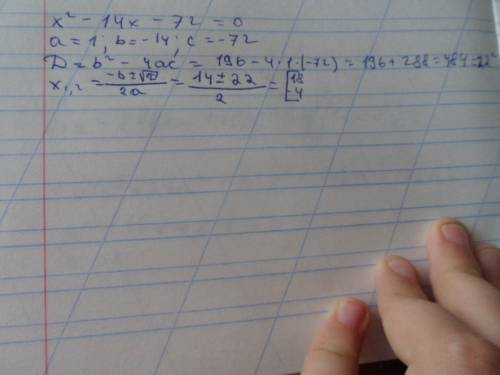 x² - 14x - 72 = 0
a = 1; b = -14; c = -72
D = b² - 4ac = 196 - 4·1·(-72) = 196 + 288 = 484 = 22²
x₁,₂ = (-b ± √D)/2a = (14 ± 22)/2 = [18 4